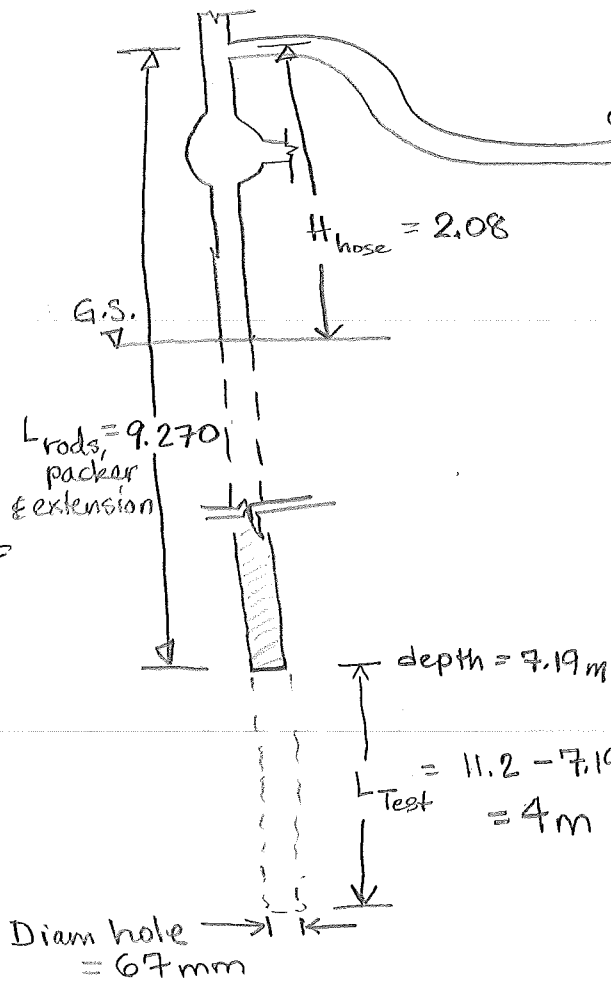 H hose = 2.08
G.S.
L rods, = 9.270
packer
& extension
depth = 7.19 m
L Test = 11.2 - 7.19
= 4 m
Diam hole
= 67 mm